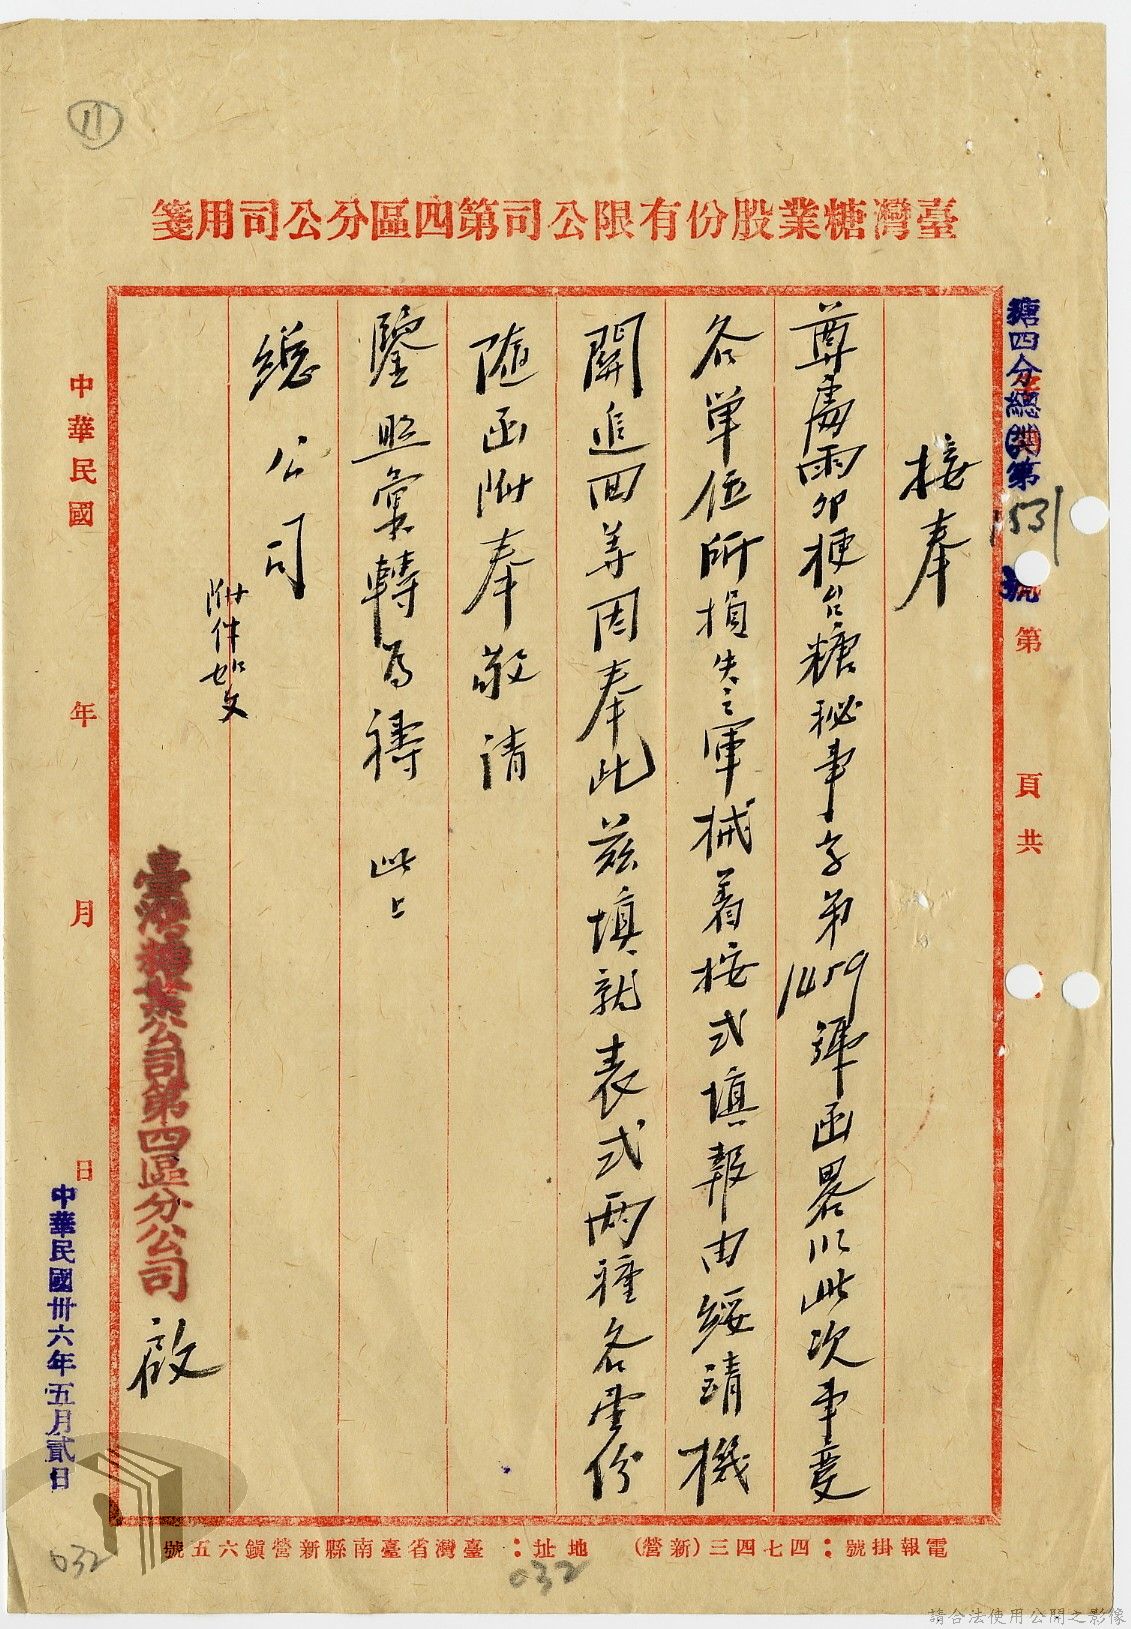 11
臺灣糖業股份有限公司第四區分公司用箋
糖四分總第1531號
第 頁共
接奉
尊處卯梗台糖秘事字第1459號函畧以此次事變
各單位所損失之軍械着按式填報由綏靖機
關追回等因奉此茲填就表式兩種各壹份
隨函附奉敬請
鑒照彙轉為禱 此上
總公司
附件如文
臺灣糖業公司第四區分公司 啟
中華民國 年 月 日
中華民國卅六年五月貳日
電報掛號：四七四三(新營) 地址：臺灣省臺南縣新營鎮六五號
032
032
請合法使用公開之影像